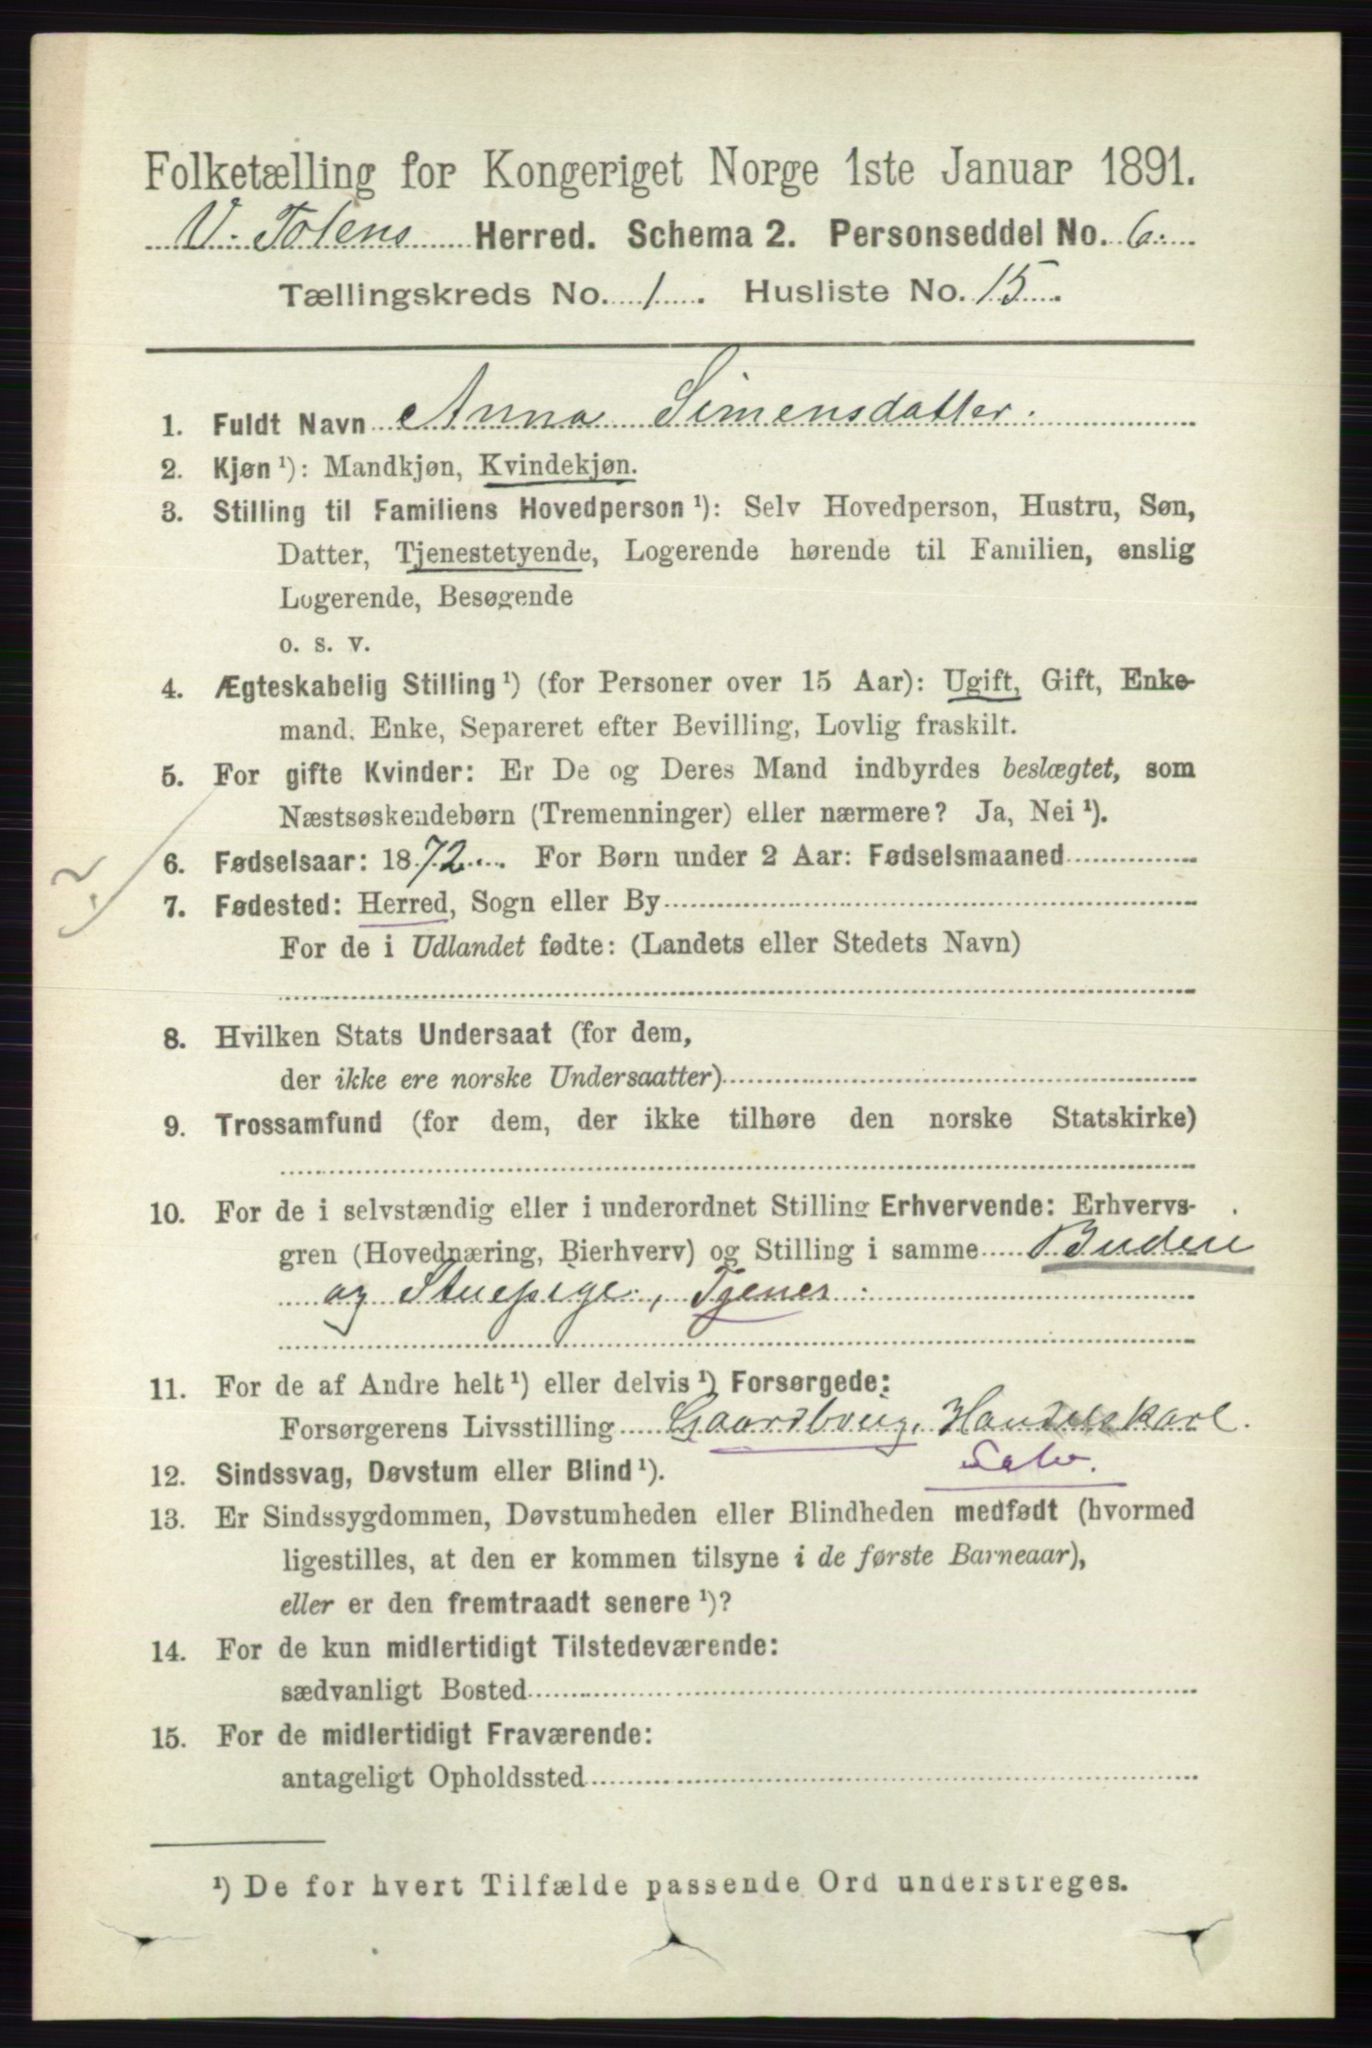 Folketælling for Kongeriget Norge 1ste Januar 1891.
V. Totens Herred. Schema 2. Personseddel No. 6.
Tællingskreds No. 1. Husliste No. 15.
1. Fuldt Navn Anna Simensdatter.
2. Kjøn ¹): Mandkjøn, Kvindekjøn.
3. Stilling til Familiens Hovedperson ¹): Selv Hovedperson, Hustru, Søn,
Datter, Tjenestetyende, Logerende hørende til Familien, enslig
Logerende, Besøgende
o. s. v.
4. Ægteskabelig Stilling ¹) (for Personer over 15 Aar): Ugift, Gift, Enke-
mand, Enke, Separeret efter Bevilling, Lovlig fraskilt.
5. For gifte Kvinder: Er De og Deres Mand indbyrdes beslægtet, som
Næstsøskendebørn (Tremenninger) eller nærmere? Ja, Nei ¹).
6. Fødselsaar: 1872. For Børn under 2 Aar: Fødselsmaaned
7. Fødested: Herred, Sogn eller By
For de i Udlandet fødte: (Landets eller Stedets Navn)
8. Hvilken Stats Undersaat (for dem,
der ikke ere norske Undersaatter)
9. Trossamfund (for dem, der ikke tilhøre den norske Statskirke)
10. For de i selvstændig eller i underordnet Stilling Erhvervende: Erhvervs-
gren (Hovednæring, Bierhverv) og Stilling i samme Budeie
og Stuepige, Tjener.
11. For de af Andre helt ¹) eller delvis ¹) Forsørgede:
Forsørgerens Livsstilling Gaardbrug, Handelskarl.
Selv.
12. Sindssvag, Døvstum eller Blind ¹).
13. Er Sindssygdommen, Døvstumheden eller Blindheden medfødt (hvormed
ligestilles, at den er kommen tilsyne i de første Barneaar),
eller er den fremtraadt senere ¹)?
14. For de kun midlertidigt Tilstedeværende:
sædvanligt Bosted
15. For de midlertidigt Fraværende:
antageligt Opholdssted
¹) De for hvert Tilfælde passende Ord understreges.